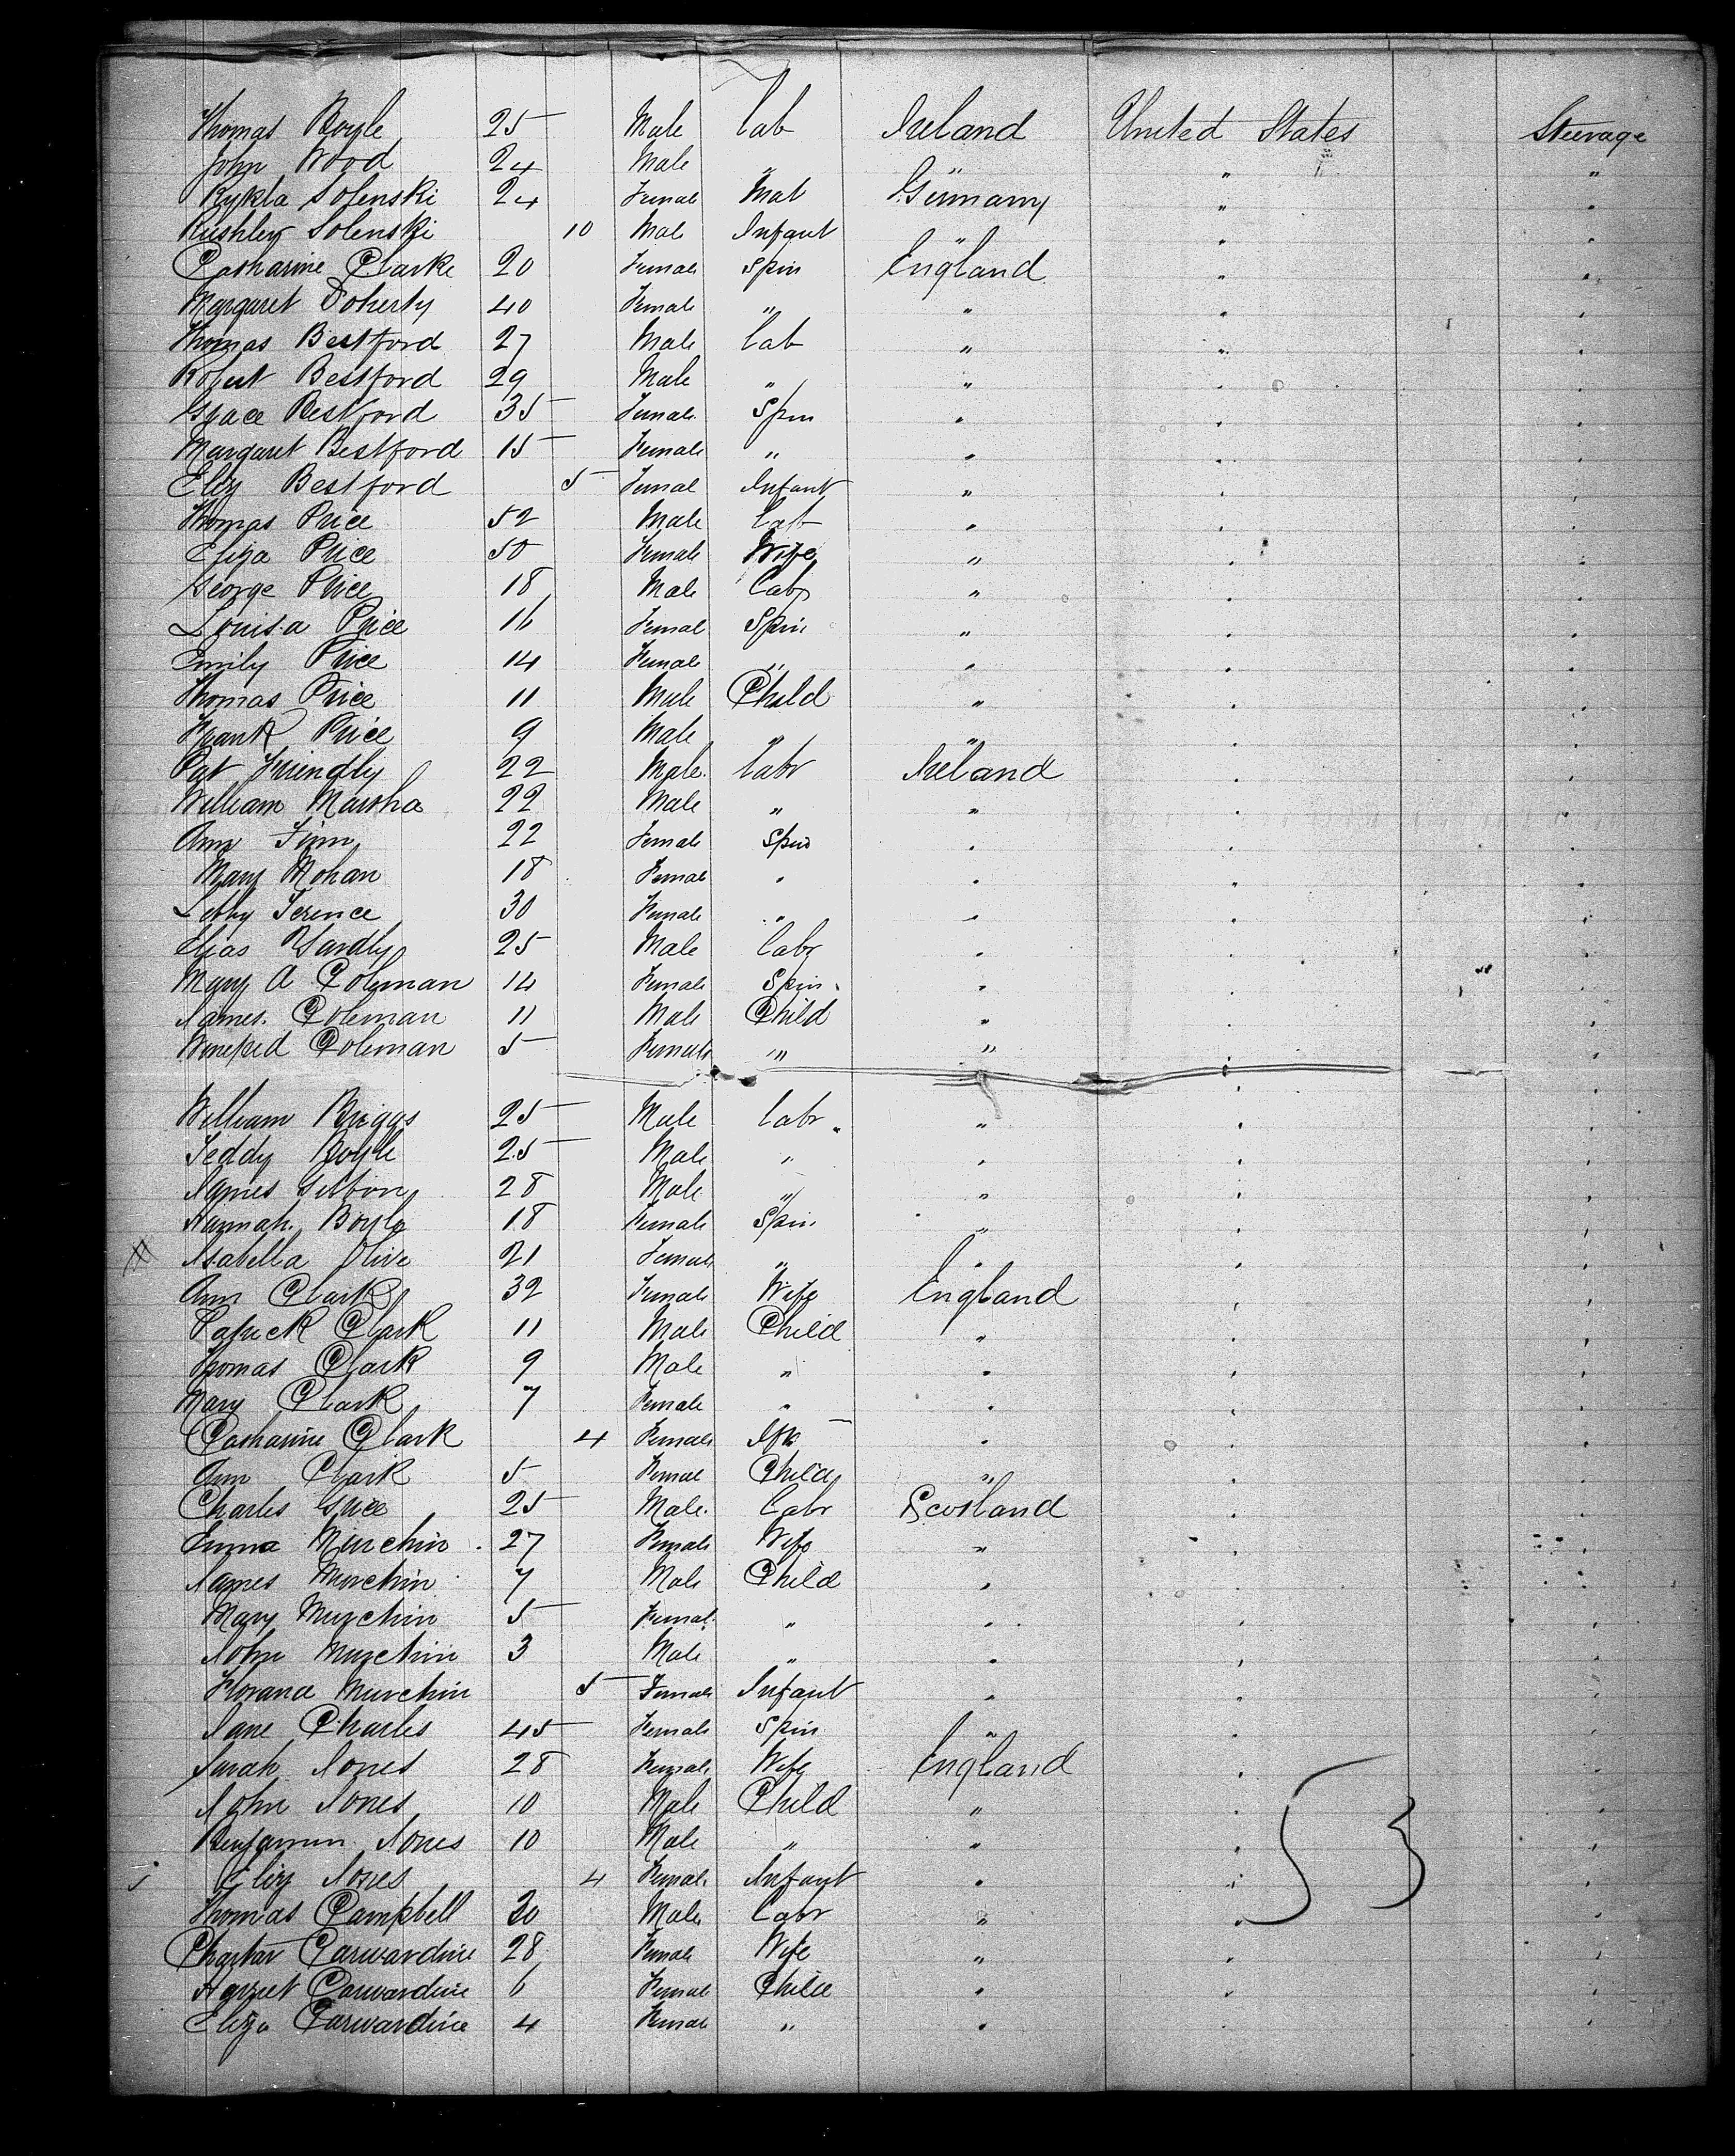 Thomas Boyle 25 Male Lab Ireland United States Steerage
John Wood 24 Male " " " "
Rykla Solenski 24 Female Mat Germany " "
Solenski 10 Male Infant " " "
Catharine Clarke 20 Female Spin England " "
Margaret Doherty 40 Female " " " "
Thomas Bestford 27 Male Lab " " "
Robert Bestford 29 Male " " " "
Grace Bestford 35 Female Spin " " "
Margaret Bestford 15 Female " " " "
Eliz Bestford 5 Female Infant " " "
Thomas Price 52 Male Lab " " "
Eliza Price 50 Female Wife " " "
George Price 18 Male Labr " " "
Louisa Price 16 Female Spin " " "
Emily Price 14 Female " " " "
Thomas Price 11 Male Child " " "
Frank Price 9 Male " " " "
Pat Friendly 22 Male Labr Ireland " "
William 22 Male " " " "
Ann Finn 22 Female Spin " " "
Mary Mohan 18 Female " " " "
Terence 30 Female " " " "
Elias Yardly 25 Male Labr " " "
Mary A Coleman 14 Female Spin " " "
James Coleman 11 Male Child " " "
Winefred Coleman 5 Female " " " "
William Briggs 25 Male Labr " " "
Teddy Boyle 25 Male " " " "
James 28 Male " " " "
Hannah Boyle 18 Female Spin " " "
Isabella Olive 21 Female " " " "
Ann Clark 32 Female Wife England " "
Patrick Clark 11 Male Child " " "
Thomas Clark 9 Male " " " "
Mary Clark 7 Female " " " "
Catharine Clark 4 Female " " "
Ann Clark 5 Female Child " " "
Charles Grice 25 Male Labr Scotland " "
Emma Murchin 27 Female Wife " " "
James Murchin 7 Male Child " " "
Mary Murchin 5 Female " " " "
John Murchin 3 Male " " " "
Florance Murchin 5 Female Infant " " "
Jane Charles 45 Female Spin " " "
Sarah Jones 28 Female Wife England " "
John Jones 10 Male Child " " "
Benjamin Jones 10 Male " " " "
Eliz Jones 4 Female Infant " " "
Thomas Campbell 20 Male Labr " " "
Carwardine 28 Female Wife " " "
Harriet Carwardine 6 Female Child " " "
Eliza Carwardine 4 Female " " " "
53